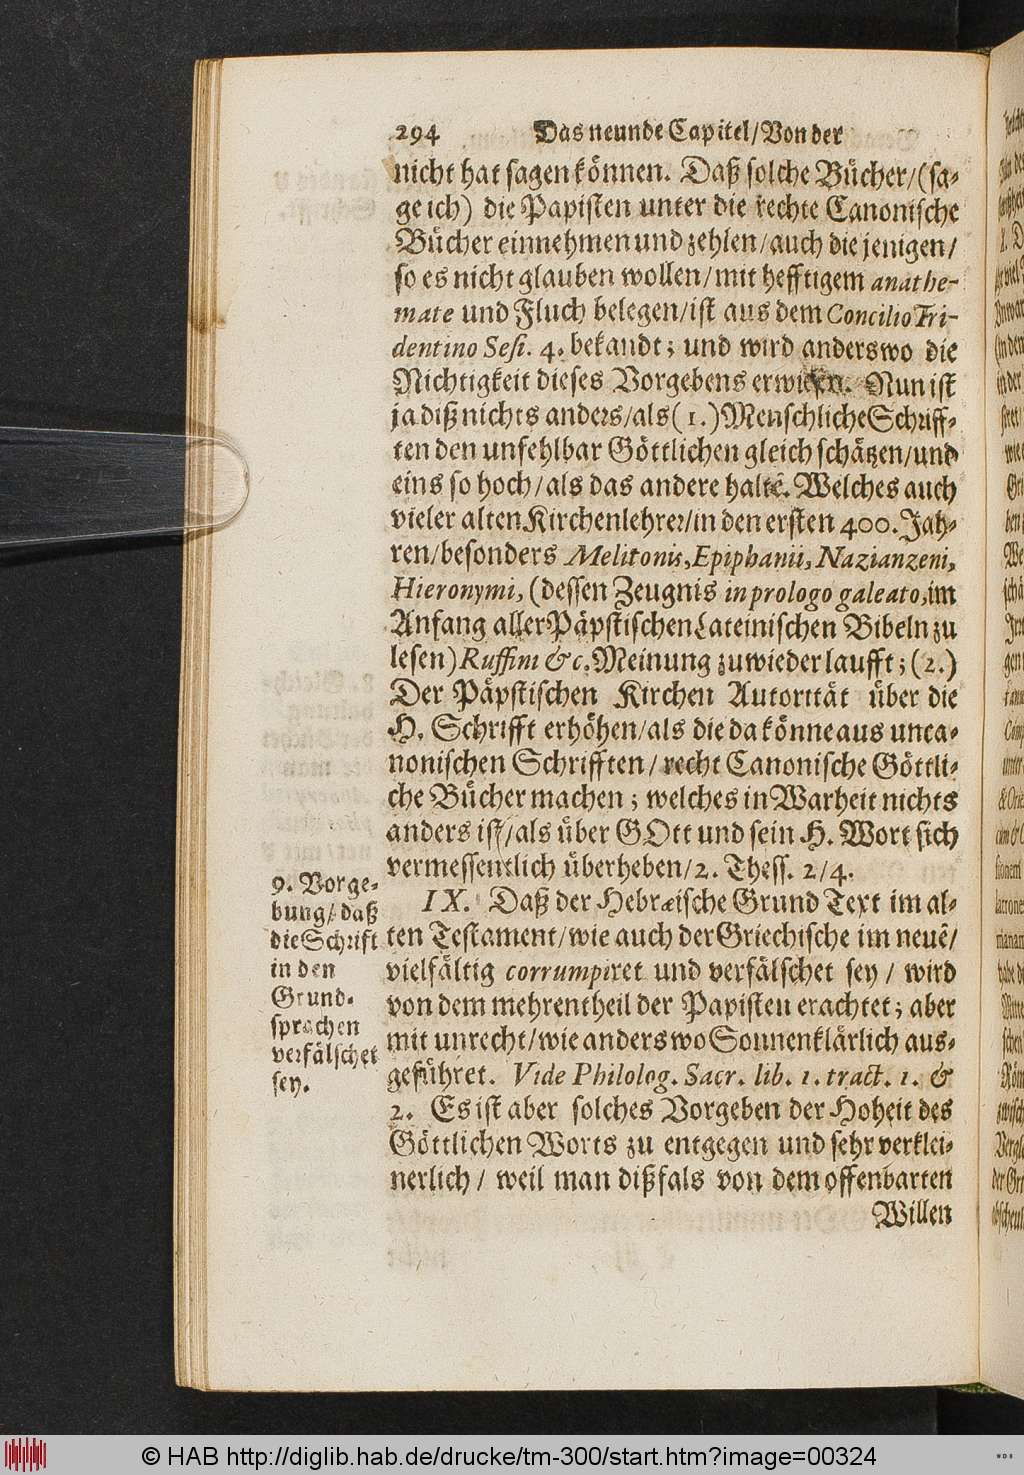 294 Das neunde Capitel/Von der
nicht hat sagen können. Daß solche Bücher/(sa-
ge ich) die Papisten unter die rechte Canonische
Bücher einnehmen und zehlen/auch die jenigen/
so es nicht glauben wollen/mit hefftigem anathe-
mate und Fluch belegen/ist aus dem Concilio Tri-
dentino Seſs. 4. bekandt; und wird anderswo die
Nichtigkeit dieses Vorgebens erwiesen. Nun ist
ja diß nichts anders/als (1.) Menschliche Schriff-
ten den unfehlbar Göttlichen gleich schätzen/und
eins so hoch/als das andere haltē. Welches auch
vieler alten Kirchenlehrer/in den ersten 400. Jah-
ren/besonders Melitonis, Epiphanii, Nazianzeni,
Hieronymi, (dessen Zeugnis in prologo galeato, im
Anfang aller Päpstischen Lateinischen Bibeln zu
lesen) Ruffini &c. Meinung zuwieder laufft; (2.)
Der Päpstischen Kirchen Autorität über die
H. Schrifft erhöhen/als die da könne aus unca-
nonischen Schrifften/ recht Canonische Göttli-
che Bücher machen; welches in Warheit nichts
anders ist/als über GOtt und sein H. Wort sich
vermessentlich überheben/2. Thess. 2/4.
9. Vorge-
bung/ daß
die Schrift
in den
Grund-
sprachen
verfälschet
sey.
IX. Daß der Hebræische Grund Text im al-
ten Testament/wie auch der Griechische im neuē/
vielfältig corrumpiret und verfälschet sey / wird
von dem mehrentheil der Papisten erachtet; aber
mit unrecht/wie anderswo Sonnenklärlich aus-
geführet. Vide Philolog. Sacr. lib. 1. tract. 1. &
2. Es ist aber solches Vorgeben der Hoheit des
Göttlichen Worts zu entgegen und sehr verklei-
nerlich / weil man dißfals von dem offenbarten
Willen
© HAB http://diglib.hab.de/drucke/tm-300/start.htm?image=00324